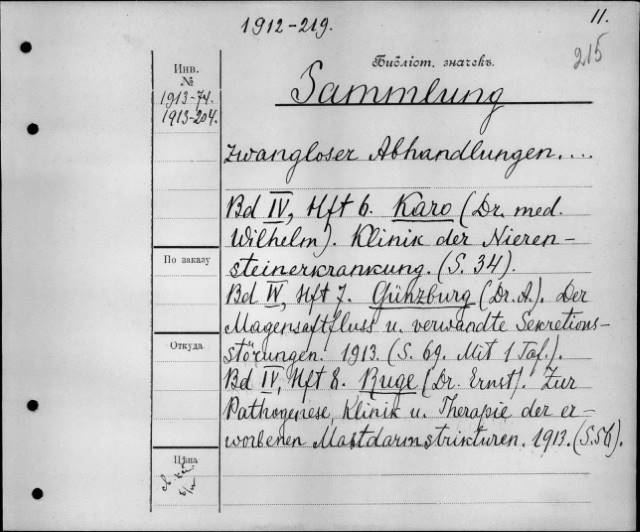 11.
1912-219.
215
Библіот. значекъ.
Инв.
№
1913-74.
1913-204.
Sammlung
zwangloser Abhandlungen....
Bd IV, Hft 6. Karo (Dr. med.
Wilhelm). Klinik der Nieren-
steinerkrankung. (S. 34).
По заказу
Bd IV, Hft 7. Günzburg (Dr. A.). Der
Magensaftfluss u. verwandte Sekretions-
Откуда
störungen. 1913. (S. 69. Mit 1 Taf.).
Bd IV, Hft 8. Ruge (Dr. Ernst). Zur
Pathogenese, Klinik u. Therapie der er-
worbenen Mastdarmstrikturen. 1913. (S. 56).
Цѣна